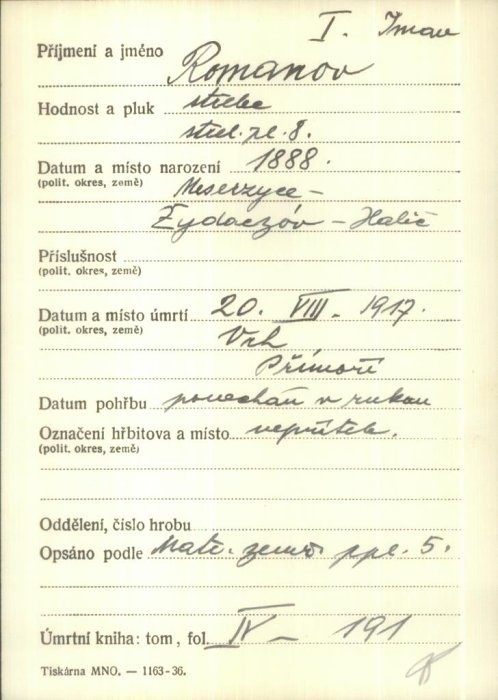 I. Iman
Příjmení a jméno Romanov
Hodnost a pluk střelec
střel. pl. 8.
Datum a místo narození 1888.
(polit. okres, země) Meserzyce –
Żydaczóv – Halič
Příslušnost
(polit. okres, země)
Datum a místo úmrtí 20. VIII. 1917.
(polit. okres, země) Vrh
Přímoří
Datum pohřbu ponechán v rukou
Označení hřbitova a místo nepřítele.
(polit. okres, země)
Oddělení, číslo hrobu
Opsáno podle Matr. zemř. ppl. 5.
Úmrtní kniha: tom, fol. IV – 191
Tiskárna MNO. — 1163-36.